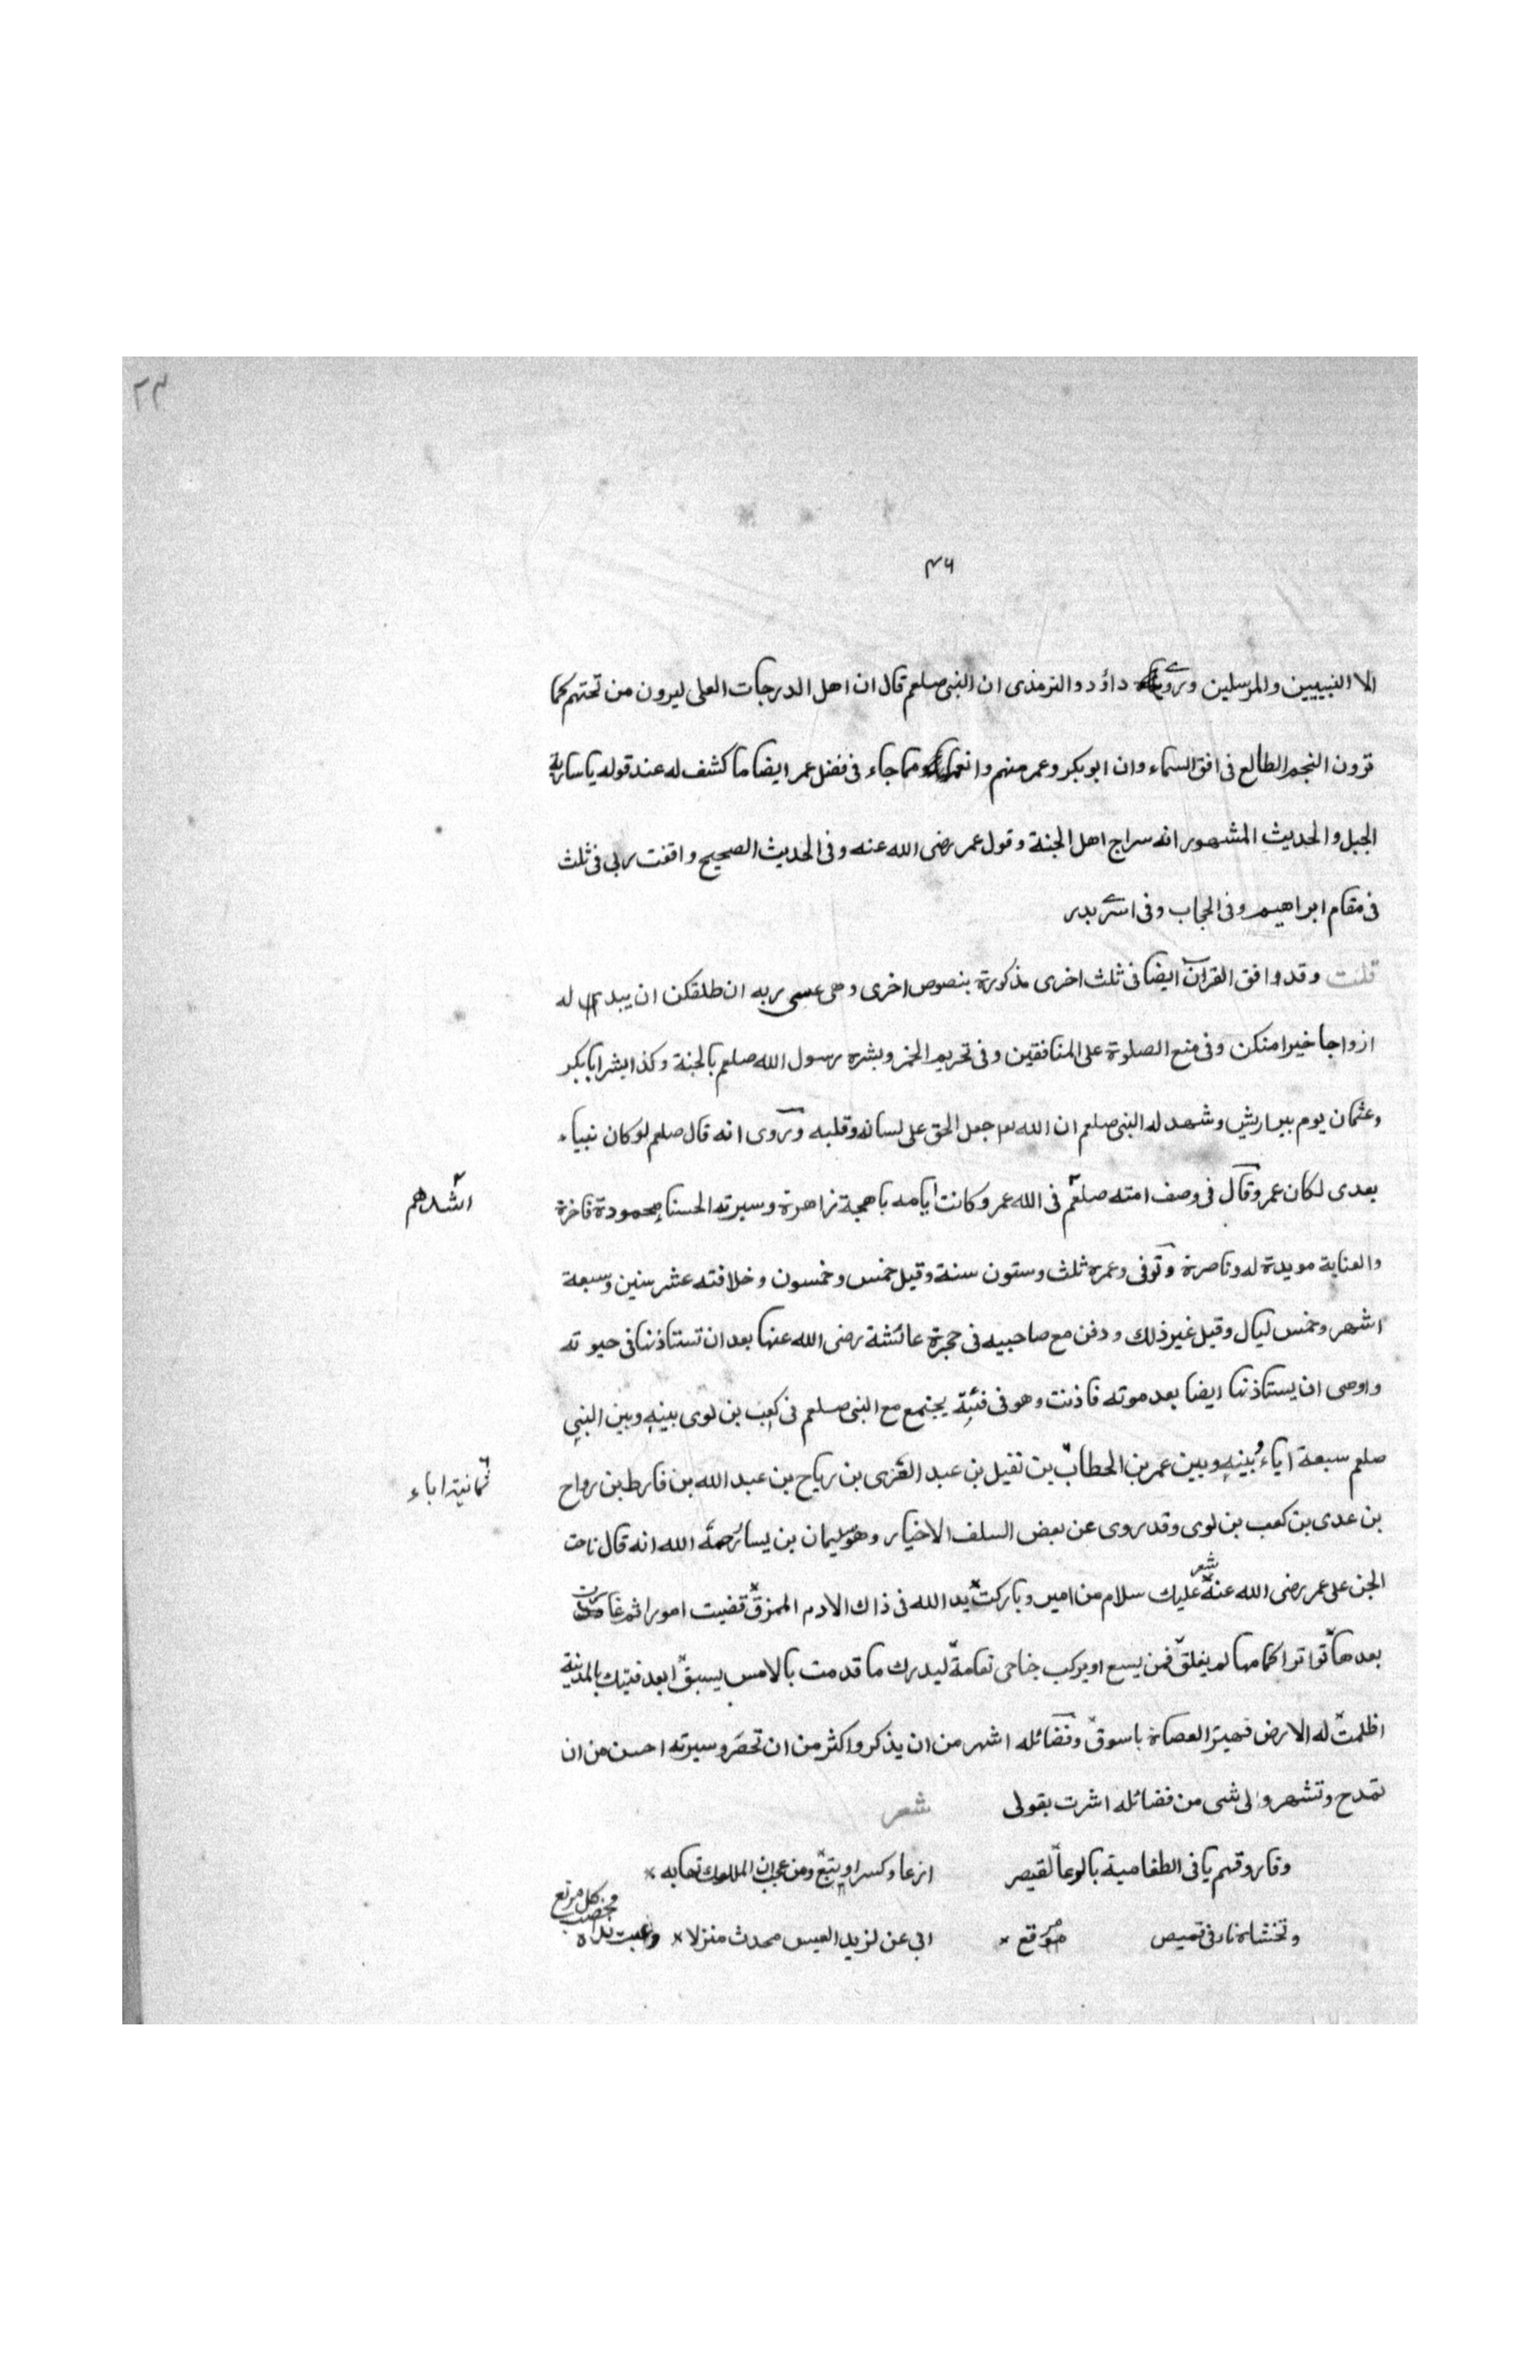 ٢٣
٤٦
الا النبيين والمرسلين وروى داؤد والترمذى ان النبى صلعم قال ان اهل الدرجات العلى ليرون من تحتهم كما
ترون النجم الطالع فى افق السماء وان ابو بكر وعمر منهم وانعما ومما جاء فى فضل عمر ايضا ما كشف له عند قوله يا سارية
الجبل والحديث المشهور انه سراج اهل الجنة وقول عمر رضى الله عنه وفى الحديث الصحيح وافقت ربى فى ثلث
فى مقام ابراهيم وفى الحجاب وفى اسرى بدر
قلت وقد وافق القران ايضا فى ثلث اخرى مذكورة بنصوص اخرى وهى عسى ربه ان طلقكن ان يبدله له
ازواجا خيرا منكن وفى منع الصلوة على المنافقين وفى تحريم الخمر وبشره رسول الله صلعم بالجنة وكذا بشر ابا بكر
وعثمان يوم بير اريش وشهد له النبى صلعم ان الله جعل الحق على لسانه وقلبه وروى انه قال صلعم لو كان نبياء
بعدى لكان عمر وقال فى وصف امته صلعم فى الله عمر وكانت ايامه باهجة زاهرة وسيرته الحسنا محمودة فاخرة
اشدهم
والعناية مويدة له وناصرة وتوفى وعمره ثلث وستون سنة وقيل خمس وخمسون وخلافته عشر سنين وسبعة
اشهر وخمس ليال وقيل غير ذلك ودفن مع صاحبيه فى حجرة عائشة رضى الله عنها بعد ان تستاذنها فى حيوته
واوصى ان يستاذنها ايضا بعد موته فاذنت وهو فى فئبة يجتمع مع النبى صلعم فى كعب بن لوى بينه وبين النبى
صلعم سبعة اباء وبينه وبين عمر بن الخطاب بن نفيل بن عبد العزى بن رياح بن عبد الله بن فارط بن رواح
ثمانية اباء
بن عدى بن كعب بن لوى وقد روى عن بعض السلف الاخيار وهو سليمان بن يسار رحمة الله انه قال ناحت
الجن على عمر رضى الله عنه شعر عليك سلام من امير وباركت يد الله فى ذاك الادم الممزق قضيت امورا ثم غادرت
بعدها تواترا كمامها لم يفلق فمن يسع او يركب جناحى نعامة ليدرك ما قدمت بالامس يسبق ابعد فتيك بالمدنية
اظلمت له الارض العصاة باسوق وفضائله اشهر من ان يذكر واكثر من ان تحصر وسيرته احسن من ان
تمدح وتشهر والى شى من فضائله اشرت بقولى شعر
وفاروقهم يافى الطفامية بالوعا لقيصر ازعا وكسرا وتبع ومن عجب ان الملوك تهابه
وتخشاه نار فى قميص مرقع ابى عن لزيد العيس محدث منزلا وخصب كل مرتع